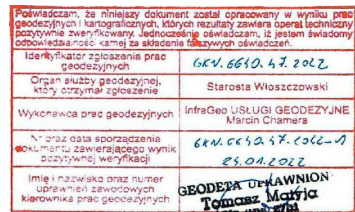 Poświadczam, że niniejszy dokument został opracowany w wyniku prac
geodezyjnych i kartograficznych, których rezultaty zawiera operat techniczny
pozytywnie zweryfikowany. Jednocześnie oświadczam, iż jestem świadomy
odpowiedzialności karnej za składanie fałszywych oświadczeń.
Identyfikator zgłoszenia prac geodezyjnych
GKN.6640.47.2022
Organ służby geodezyjnej, który otrzymał zgłoszenie
Starosta Włoszczowski
Wykonawca prac geodezyjnych
InfraGeo USŁUGI GEODEZYJNE
Marcin Chamera
Nr oraz data sporządzenia
dokumentu zawierającego wynik
pozytywnej weryfikacji
GKN.6640.47.2022-1
25.01.2022
Imię i nazwisko oraz numer
uprawnień zawodowych
kierownika prac geodezyjnych
GEODETA UPRAWNION
Tomasz Matyja